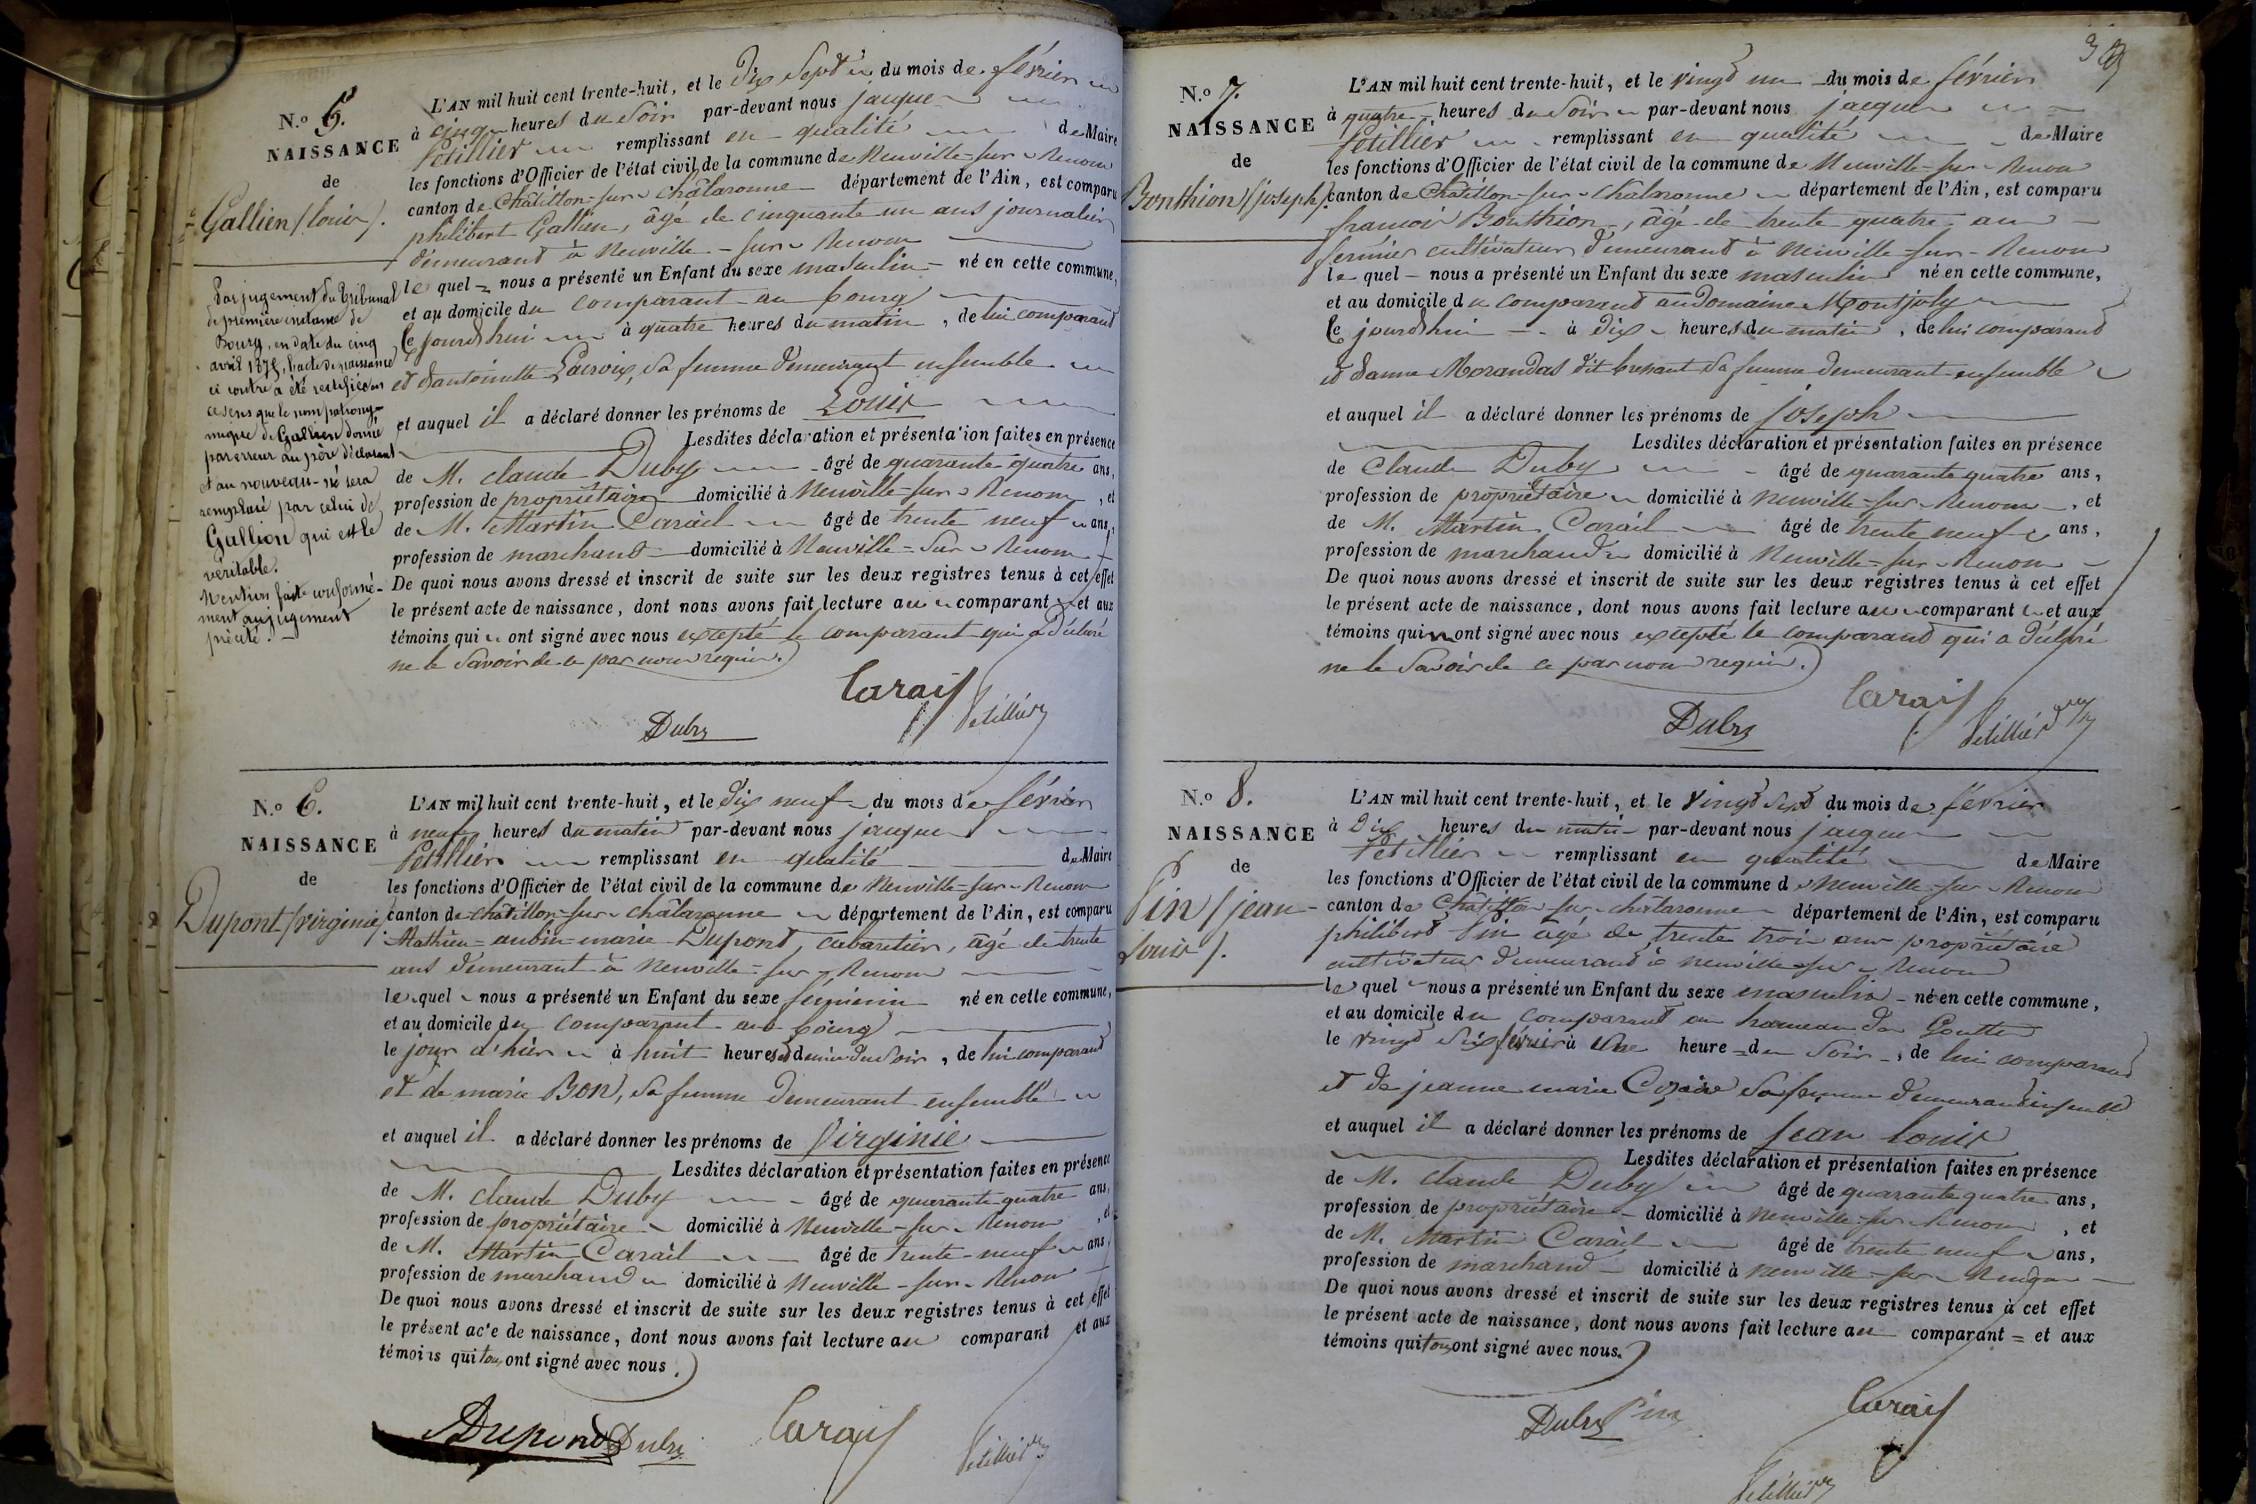 N.o 5.
NAISSANCE
de
Gallien (louis).
L'AN mil huit cent trente-huit, et le dix Sept du mois de février
à cinq heures du Soir par-devant nous jacques
remplissant en qualité de Maire
les fonctions d'Officier de l'état civil de la commune de Neuville-sur-Renom
canton de Châtillon-sur-Châlaronne département de l'Ain, est comparu
philibert Gallien, âgé de cinquante un ans journalier
demeurant à Neuville-sur-Renom
lequel nous a présenté un Enfant du sexe masculin né en cette commune,
et au domicile du comparant au bourg
ce jourdhui à quatre heures du matin, de lui comparant
et d'antoinette Lacroix, sa femme demeurant ensemble
et auquel il a déclaré donner les prénoms de Louis
Lesdites déclaration et présentation faites en présence
de M. claude Duby âgé de quarante quatre ans,
profession de propriétaire domicilié à Neuville-sur-Renom, et
de M. Martin Carail âgé de trente neuf ans,
profession de marchand domicilié à Neuville-sur-Renom
De quoi nous avons dressé et inscrit de suite sur les deux registres tenus à cet effet
le présent acte de naissance, dont nous avons fait lecture au comparant et aux
témoins qui ont signé avec nous excepté le comparant qui a déclaré
ne le Savoir de ce par nous requis.
Par jugement du Tribunal
de première instance de
Bourg, en date du cinq
avril 1878, l'acte de naissance
ci contre a été rectifié en
ce sens que le nom patrony-
mique de Gallien donné
par erreur au père déclarant
et au nouveau-né sera
remplacé par celui de
Gallion qui est le
véritable.
Mention faite conformé-
ment au jugement
précité.
Carail
Duby
N.o 6.
NAISSANCE
de
Dupont (virginie)
L'AN mil huit cent trente-huit, et le dix neuf du mois de février
à neuf heures du matin par-devant nous jacques
remplissant en qualité de Maire
les fonctions d'Officier de l'état civil de la commune de Neuville-sur-Renom
canton de châtillon-sur-châlaronne département de l'Ain, est comparu
Mathieu-aubin-marie Dupont, cabaretier, âgé de trente
ans demeurant à Neuville-sur-Renom
lequel nous a présenté un Enfant du sexe féminin né en cette commune,
et au domicile du comparant au bourg
le jour d'hier à huit heures et demie du Soir, de lui comparant
et de marie Bon, sa femme demeurant ensemble
et auquel il a déclaré donner les prénoms de Virginie
Lesdites déclaration et présentation faites en présence
de M. claude Duby âgé de quarante quatre ans,
profession de propriétaire domicilié à Neuville-sur-Renom, et
de M. Martin Carail âgé de trente-neuf ans,
profession de marchand domicilié à Neuville-sur-Renom
De quoi nous avons dressé et inscrit de suite sur les deux registres tenus à cet effet
le présent acte de naissance, dont nous avons fait lecture au comparant et aux
témoins qui tous ont signé avec nous.
Dupond Duby Carail
N.o 7.
NAISSANCE
de
Bonthion (joseph).
L'AN mil huit cent trente-huit, et le vingt un du mois de février
à quatre heures du Soir par-devant nous jacques
remplissant en qualité de Maire
les fonctions d'Officier de l'état civil de la commune de Neuville-sur-Renom
canton de Châtillon-sur-Chalaronne département de l'Ain, est comparu
francois Bonthion, âgé de trente quatre ans
fermier cultivateur demeurant à Neuville-sur-Renom
lequel nous a présenté un Enfant du sexe masculin né en cette commune,
et au domicile du comparant au Domaine Montjoly
ce jourdhui à dix heures du matin, de lui comparant
et Morandas dit sa femme demeurant ensemble
et auquel il a déclaré donner les prénoms de joseph
Lesdites déclaration et présentation faites en présence
de Claude Duby âgé de quarante quatre ans,
profession de propriétaire domicilié à Neuville-sur-Renom, et
de M. Martin Carail âgé de trente neuf ans,
profession de marchand domicilié à Neuville-sur-Renom
De quoi nous avons dressé et inscrit de suite sur les deux registres tenus à cet effet
le présent acte de naissance, dont nous avons fait lecture au comparant et aux
témoins qui ont signé avec nous excepté le comparant qui a déclaré
ne le Savoir de ce par nous requis.
Carail
Duby
N.o 8.
NAISSANCE
de
Pin (jean-
Louis).
L'AN mil huit cent trente-huit, et le Vingt Sept du mois de février
à Dix heures du matin par-devant nous jacques
remplissant en qualité de Maire
les fonctions d'Officier de l'état civil de la commune de Neuville-sur-Renom
canton de Chatillon-sur-chalaronne département de l'Ain, est comparu
philibert Pin âgé de trente trois ans propriétaire
cultivateur demeurant à neuville-sur-Renom
lequel nous a présenté un Enfant du sexe masculin né en cette commune,
et au domicile du comparant au hameau
le vingt Six février à Une heure du Soir, de lui comparant
et de jeanne marie sa femme demeurant ensemble
et auquel il a déclaré donner les prénoms de Jean Louis
Lesdites déclaration et présentation faites en présence
de M. Claude Duby âgé de quarante quatre ans,
profession de propriétaire domicilié à Neuville-sur-Renom, et
de M. Martin Carail âgé de trente neuf ans,
profession de marchand domicilié à Neuville-sur-Renom
De quoi nous avons dressé et inscrit de suite sur les deux registres tenus à cet effet
le présent acte de naissance, dont nous avons fait lecture au comparant et aux
témoins qui tous ont signé avec nous.
Duby Pin Carail